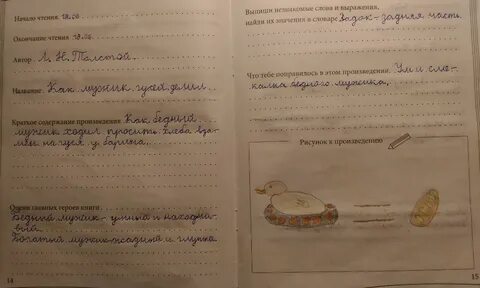 Начало чтения 18.06.
Окончание чтения 18.06.
Автор Л. Н. Толстой.
Название Как мужик гусей делил.
Краткое содержание произведения Как бедный
мужик ходил просить хлеба вза-
мен на гуся у барина.
Опиши главных героев книги
Бедный мужик - умный и находчи-
вый.
Богатый мужик - жадный и глупый.
14
Выпиши незнакомые слова и выражения,
найди их значения в словаре Задок - задняя часть.
Что тебе понравилось в этом произведении Ум и сме-
калка бедного мужика.
Рисунок к произведению
15